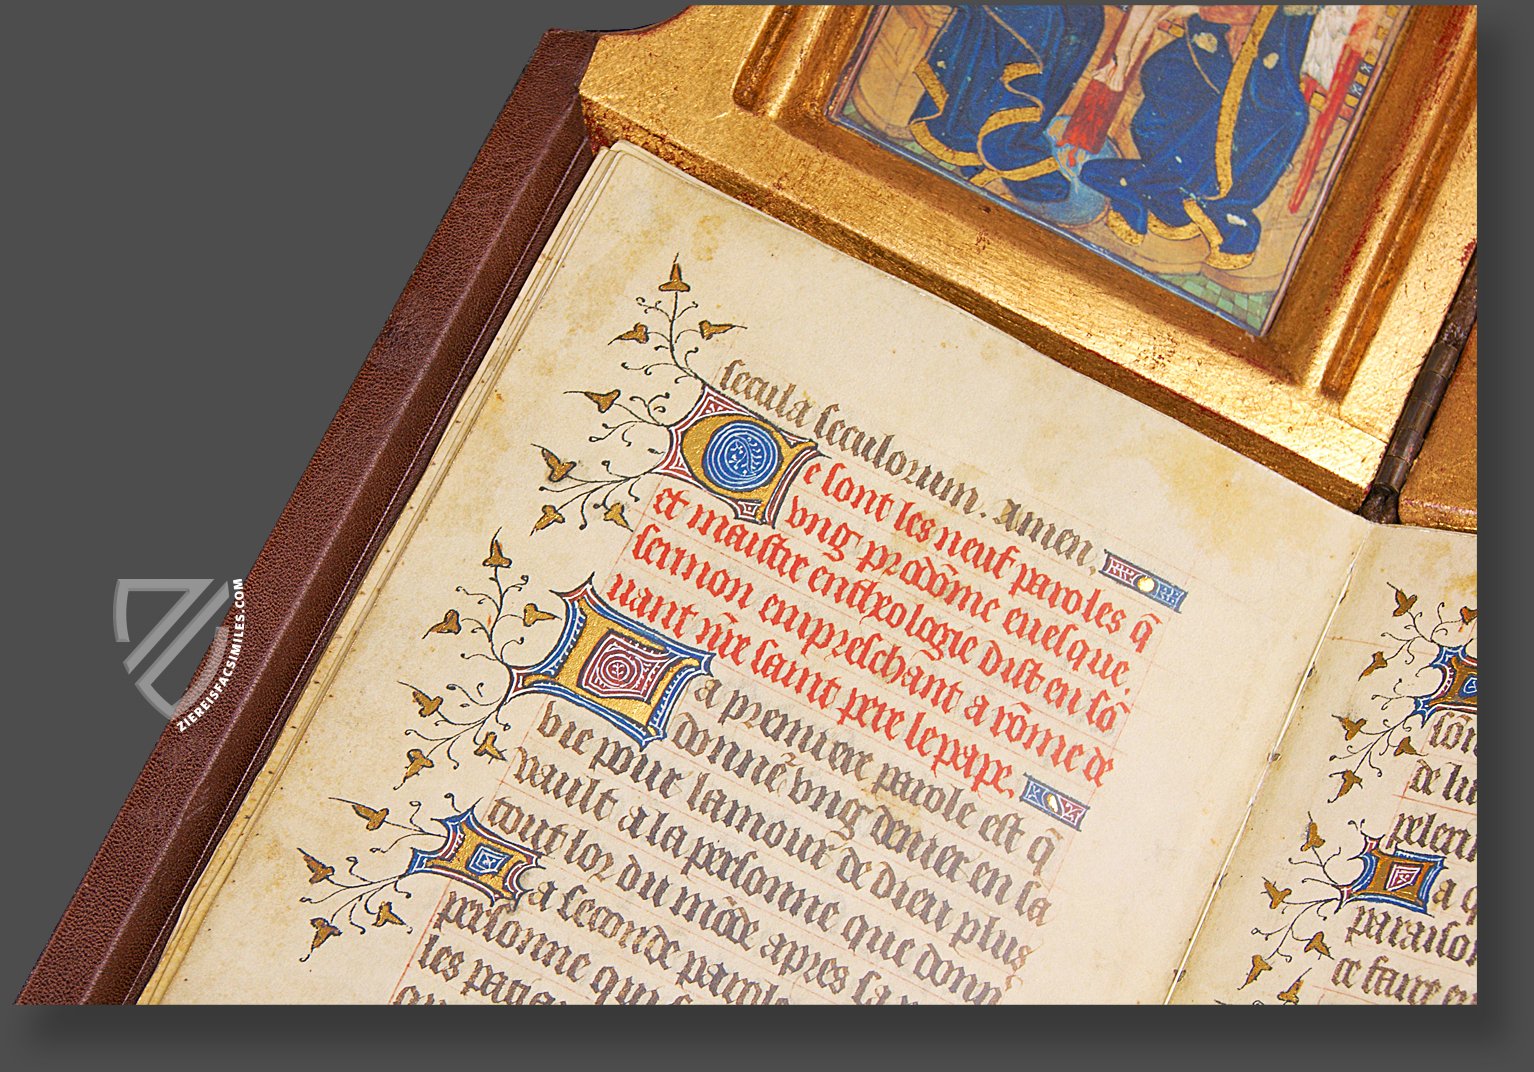 secula seculorum. Amen.
Ce sont les neuf paroles q̃
vng prodõme euesque.
et maistre entheologie dist en sõ
sermon empreschant a rõme de
uant nr̃e saint pere le pape.
La premiere parole est q̃
donne vng denier en la
vie pour lamour de dieu plus
vault a la personne que donn
tout lor du mõde apres sa
La seconde parole
personne qui
les paga
sõn
de lu
peleri
a q
paraiso
ce faire en
ZIEREISFACSIMILES.COM